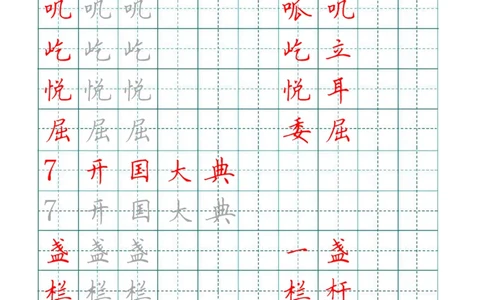 叽 叽 叽 呱 叽
屹 屹 屹 屹 立
悦 悦 悦 悦 耳
屈 屈 屈 委 屈
7 开 国 大 典
7 开 国 大 典
盏 盏 盏 一 盏
栏 栏 栏 栏 杆